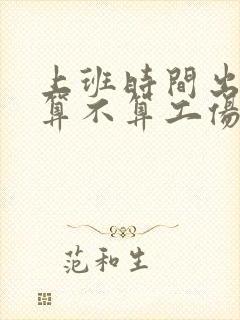 上班時間出
算不算工傷
范和生